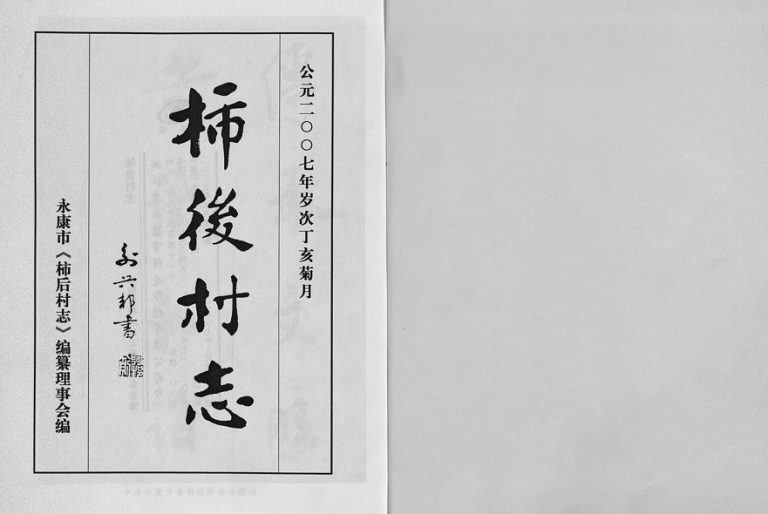 公元二〇〇七年岁次丁亥菊月
柿後村志
兴邦書
永康市《柿后村志》编纂理事会编